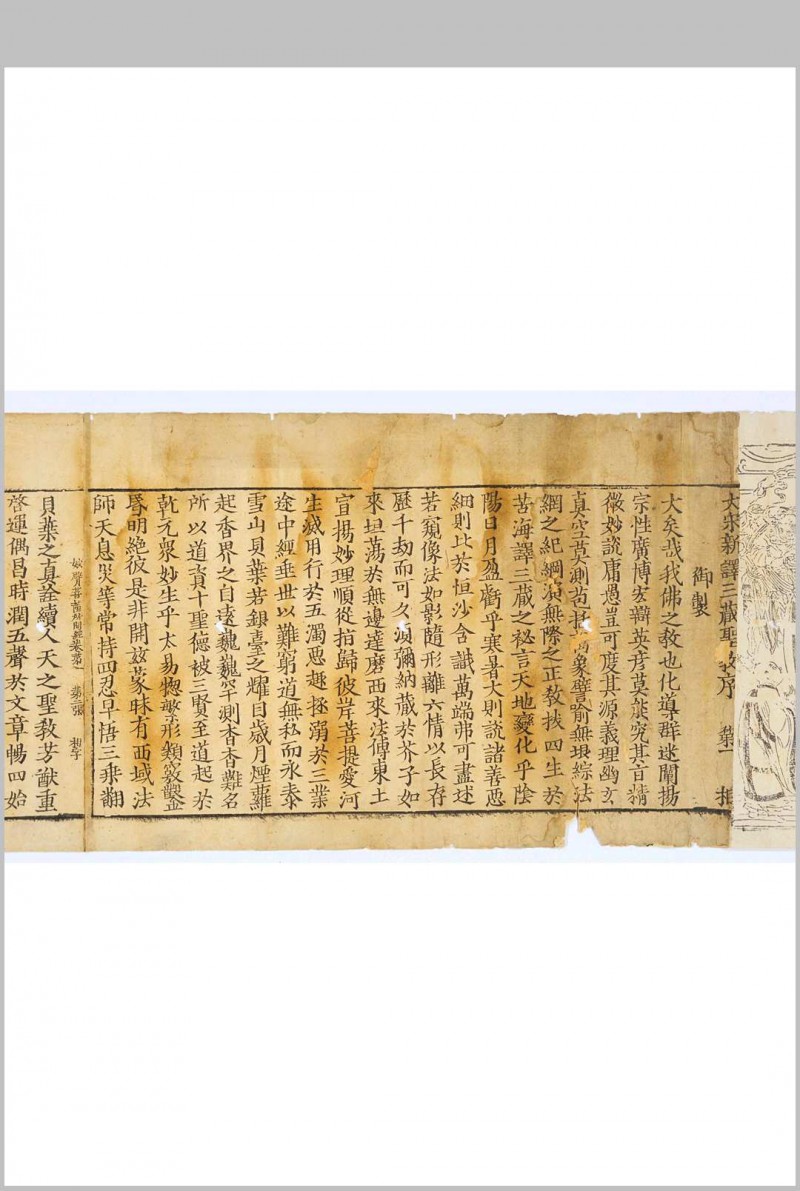 大宋新譯三藏聖教序　　第一　　相
御製
大矣哉我佛之教也化導群迷闡揚
宗性廣博宏辯英彥莫能究其旨精
微妙說庸愚豈可度其源義理幽玄
真空莫測苞括萬象譬喻無垠綜法
網之紀綱演無際之正教拔四生於
苦海譯三藏之祕言天地變化乎陰
陽日月盈虧乎寒暑大則說諸善惡
細則比於恒沙含識萬端弗可盡述
若窺像法如影隨形離六情以長存
歷千劫而可久須彌納藏於芥子如
來坦蕩於無邊達磨西來法傳東土
宣揚妙理順從指歸彼岸菩提愛河
生滅用行於五濁惡趣拯溺於三業
途中經垂世以難窮道無私而永泰
雪山貝葉若銀臺之耀日歲月煙蘿
起香界之自遠巍巍罕測杳杳難名
所以道資十聖德被三賢至道起於
乾元眾妙生乎太易惣繁形類竅鑿
昏明絶彼是非開玆蒙昧有西域法
師天息災等常持四忍早悟三乘翻
第二張　相字
貝葉之真詮續人天之聖教芳猷重
啓運偶昌時潤五聲於文章暢四始